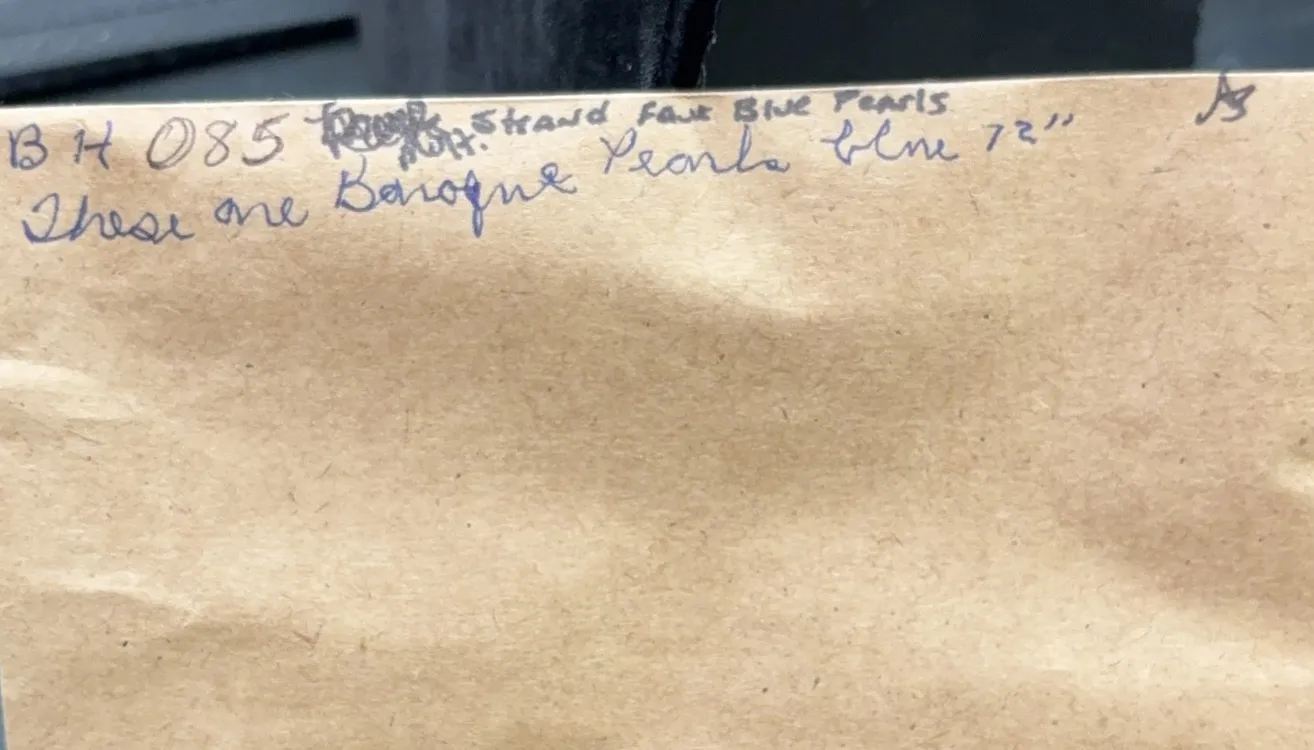 BH 085 Strand Faux Blue Pearls
These are Baroque Pearls blue 72"